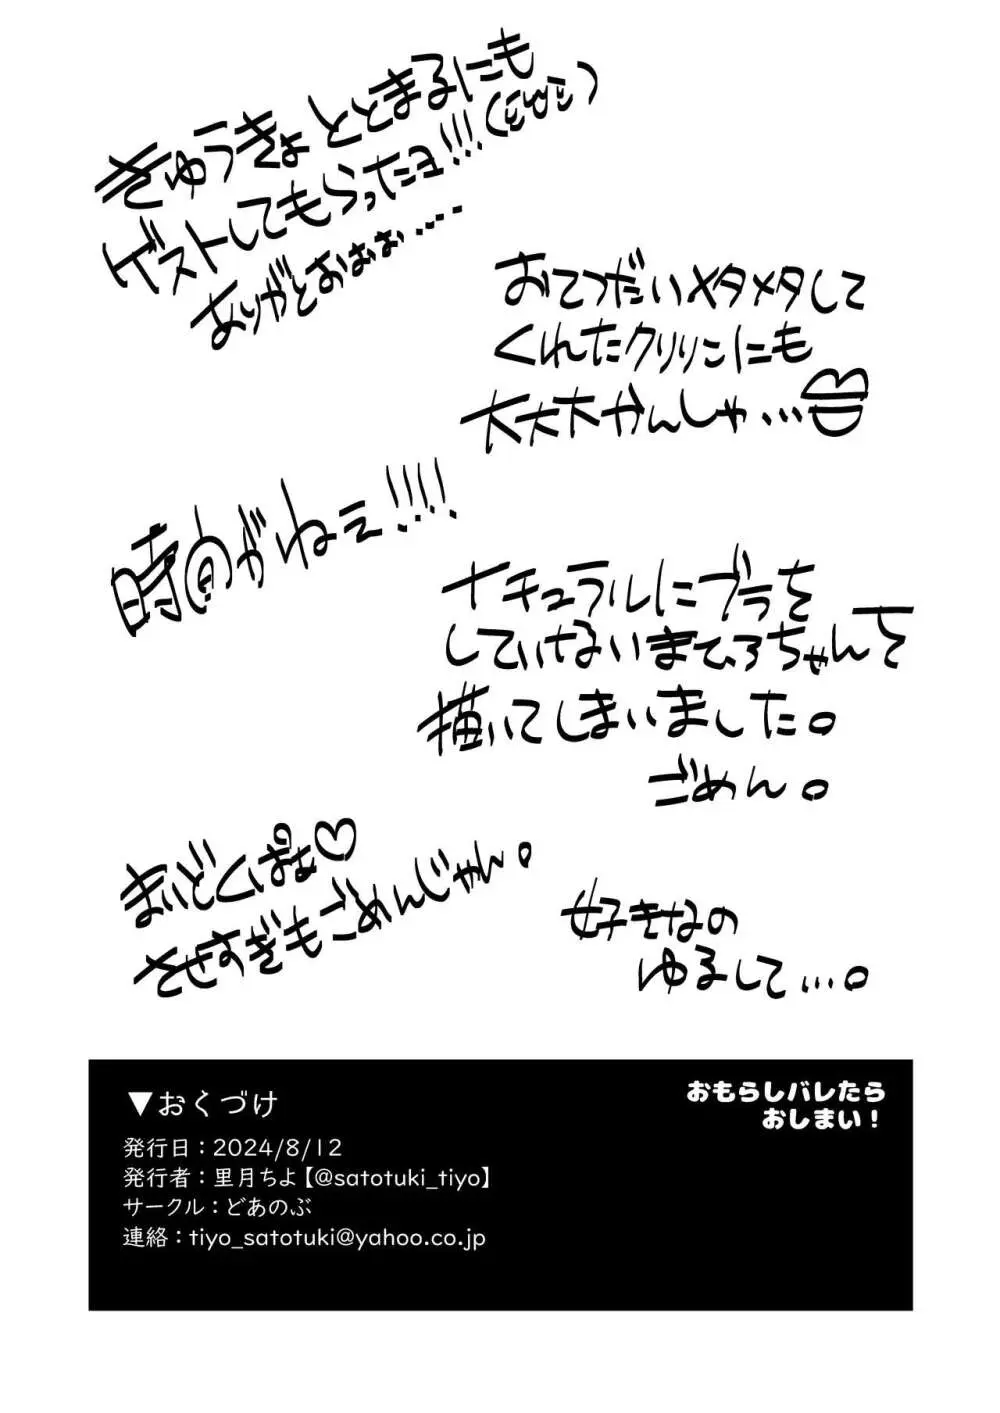 きゅうきょ ととまるにも
ゲストしてもらったョ!!!(ミ山ミ)
ありがとおぉぉ‥‥
おてつだいメタメタして
くれたクリリンにも
大大大かんしゃ…♡
時間がねェ!!!!
ナチュラルにブラを
していないまひろちゃんを
描いてしまいました。
ごめん。
まいどくぱぁ♡
させすぎもごめんじゃん。
好きなの
ゆるして…。
▼おくづけ
おもらしバレたら
おしまい！
発行日：2024/8/12
発行者：里月ちよ【@satotuki_tiyo】
サークル：どあのぶ
連絡：tiyo_satotuki@yahoo.co.jp